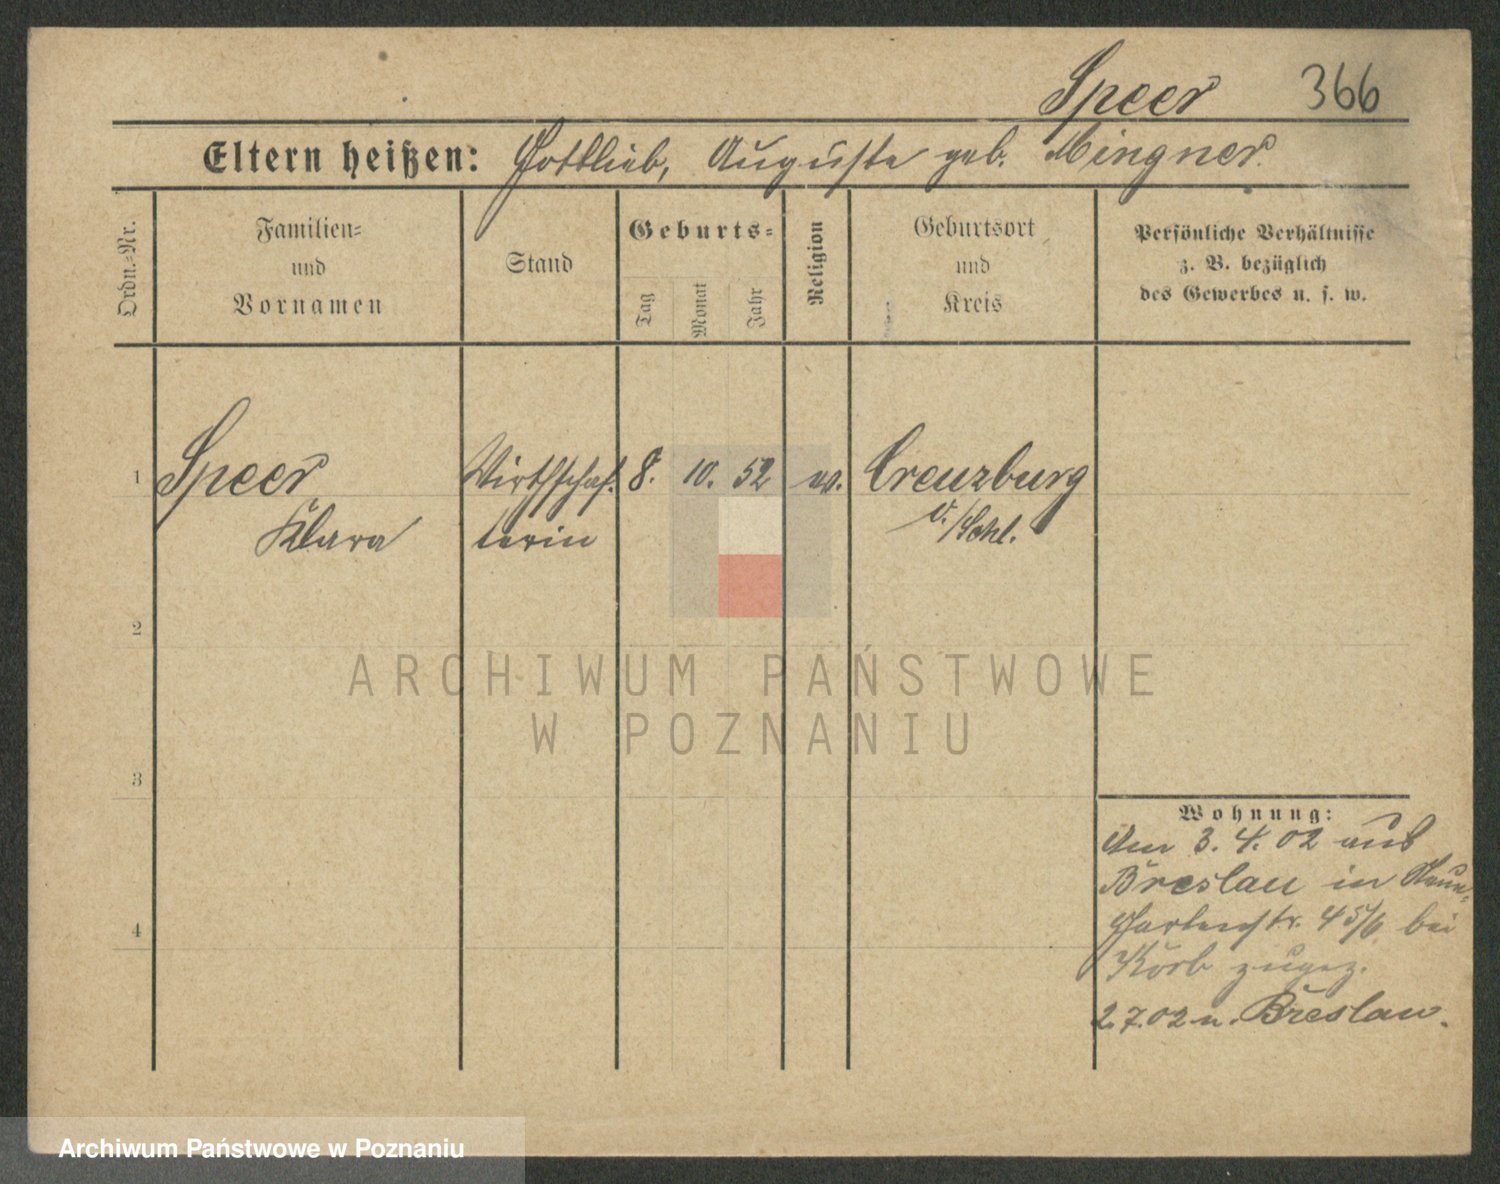 Speer 366
Eltern heißen: Gottlieb, Auguste geb. Mingner.
Ordn.=Nr.
Familien=
und
Vornamen
Stand
Geburts=
Tag
Monat
Jahr
Religion
Geburtsort
und
Kreis
Persönliche Verhältnisse
z. B. bezüglich
des Gewerbes u. s. w.
1 Speer Wirthschaf. 8. 10. 52 ev. Creuzburg
Klara terin O./Schl.
2
3
4
Wohnung:
Am 3. 4. 02 aus
Breslau in
Gartenstr. 45/6 bei
Korb zugez.
2.7.02 n. Breslau.
ARCHIWUM PAŃSTWOWE
W POZNANIU
Archiwum Państwowe w Poznaniu